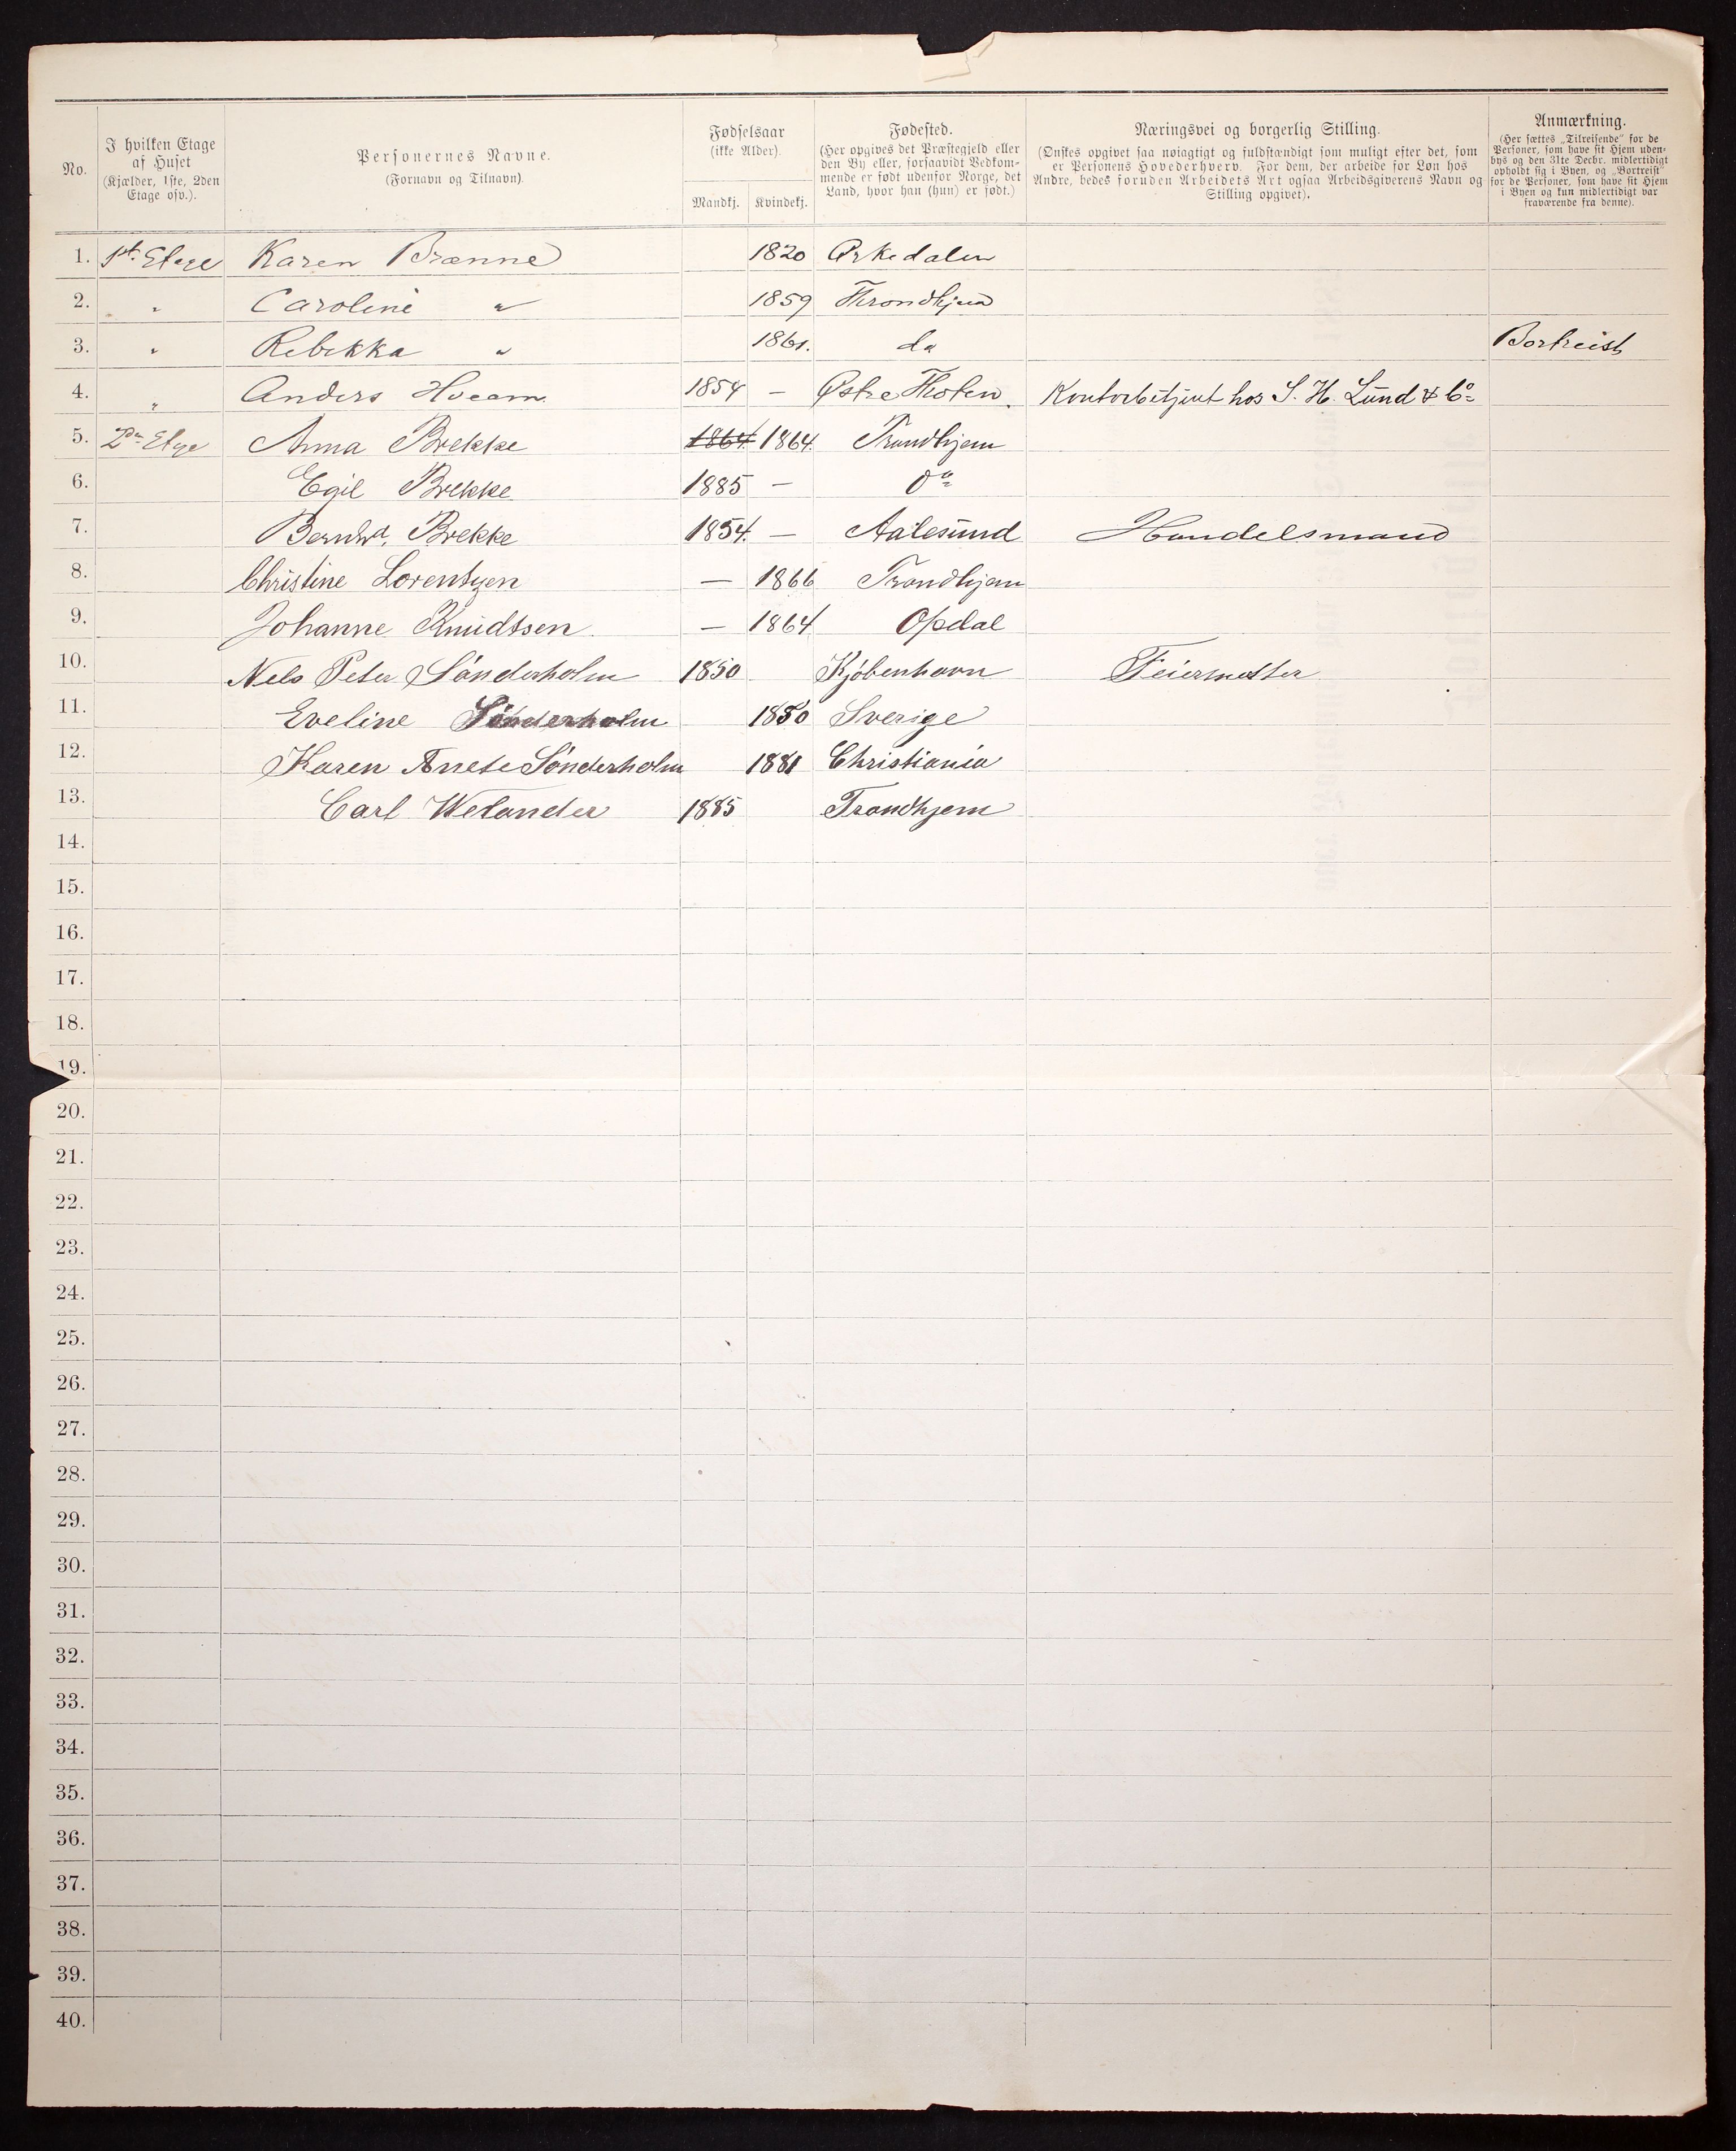 No.
I hvilken Etage
af Huset
(Kjælder, 1ste, 2den
Etage osv.).
Personernes Navne.
(Fornavn og Tilnavn).
Fødselsaar
(ikke Alder).
Mandkj. Kvindekj.
Fødested.
(Her opgives det Præstegjeld eller
den By eller, forsaavidt Vedkom-
mende er født udenfor Norge, det
Land, hvor han (hun) er født.)
Næringsvei og borgerlig Stilling.
(Ønskes opgivet saa nøiagtigt og fuldstændigt som muligt efter det, som
er Personens Hovederhverv. For dem, der arbeide for Løn hos
Andre, bedes foruden Arbeidets Art ogsaa Arbeidsgiverens Navn og
Stilling opgivet).
Anmærkning.
(Her sættes „Tilreisende“ for de
Personer, som have sit Hjem uden-
bys og den 31te Decbr. midlertidigt
opholdt sig i Byen, og „Bortreist“
for de Personer, som have sit Hjem
i Byen og kun midlertidigt var
fraværende fra denne).
1. 1st. Etage Karen Brænne 1820 Orkedalen
2. " Caroline " 1859 Throndhjem
3. " Rebekka " 1861. do Bortreist
4. " Anders Hveam. 1854 — Østre Thoten. Kontorbetjent hos S. H. Lund & Co
5. 2n Etage Anna Brekke 1864 1864. Trondhjem
6. Egil Brekke 1885 — Do
7. Bernhd. Brekke 1854. — Aalesund Handelsmand
8. Christine Lorentzen — 1866 Trondhjem
9. Johanne Knudtsen. — 1864 Opdal
10. Nels Peter Sønderholm 1850 Kjøbenhavn Feiermester
11. Eveline Sønderholm 1850 Sverige
12. Karen Anete Sønderholm 1881 Christiania
13. Carl Welander 1885 Trondhjem
14.
15.
16.
17.
18.
19.
20.
21.
22.
23.
24.
25.
26.
27.
28.
29.
30.
31.
32.
33.
34.
35.
36.
37.
38.
39.
40.